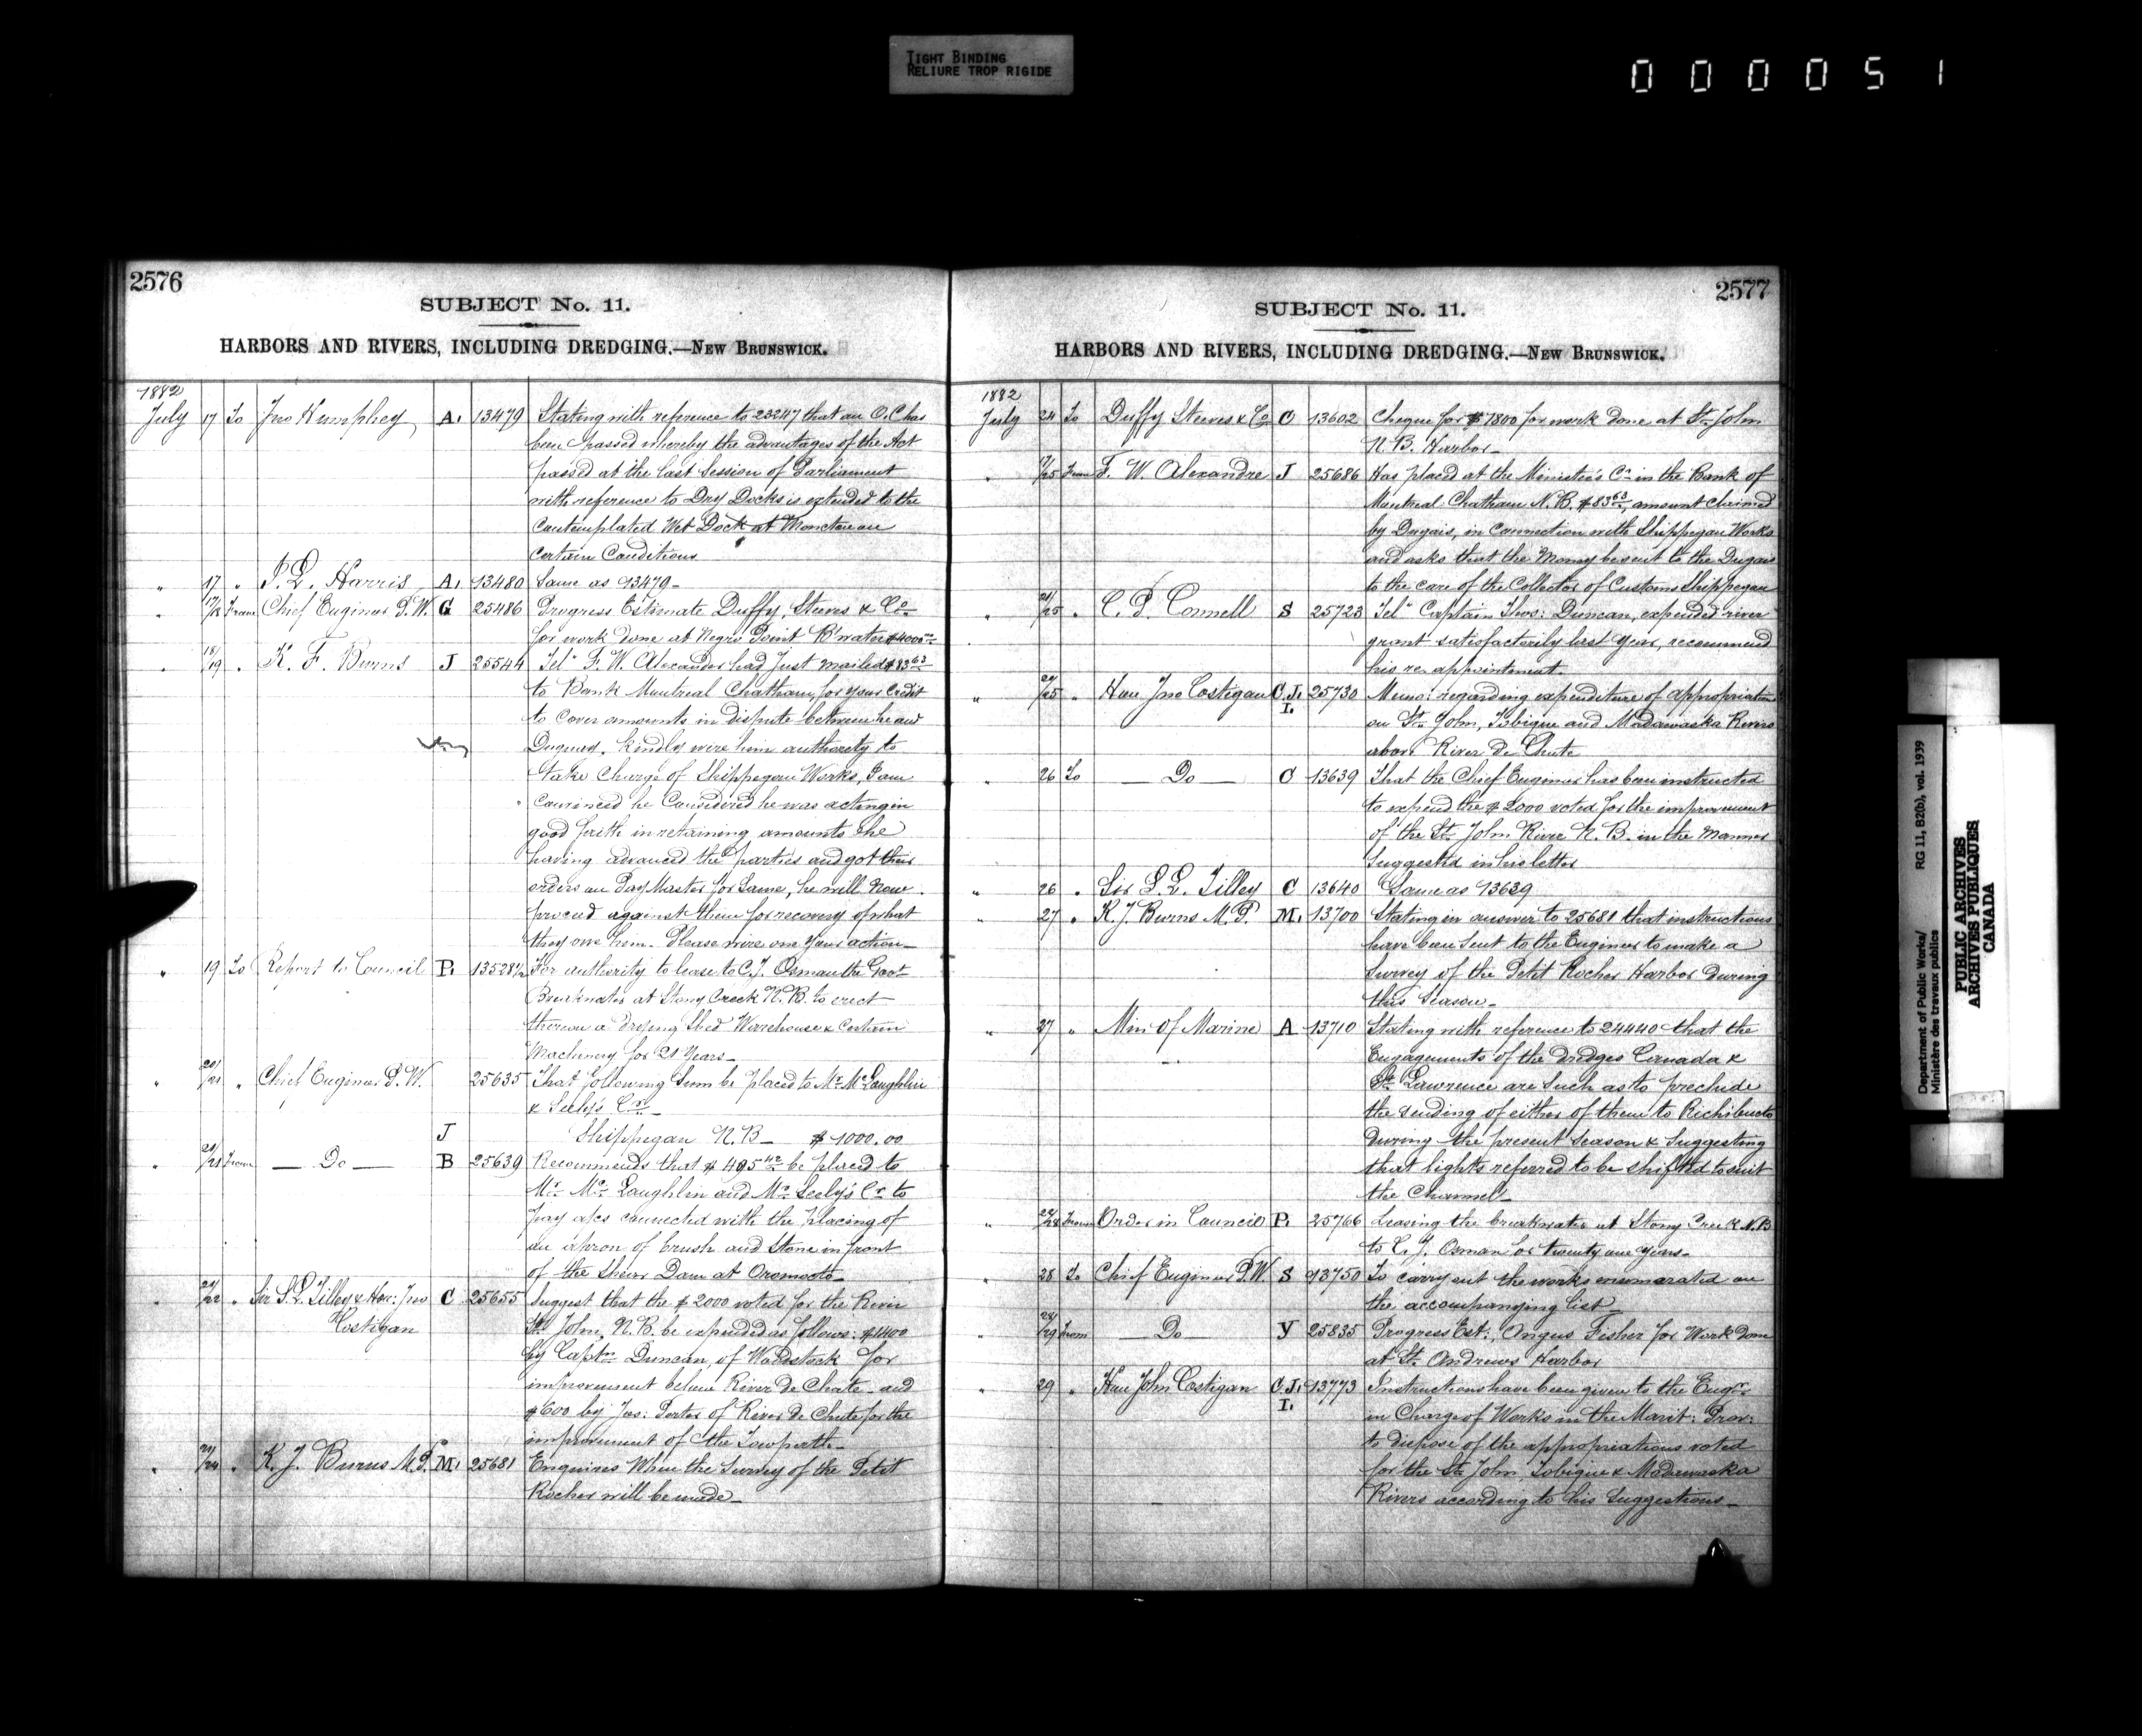 TIGHT BINDING
RELIURE TROP RIGIDE
000051
2576
SUBJECT No. 11.
HARBORS AND RIVERS, INCLUDING DREDGING.—NEW BRUNSWICK.
1882
July 17 To Jno Humphey A. 13479 Stating with reference to 23247 that an O.C has
been passed whereby the advantages of the Act
passed at the last Session of Parliament
with reference to Dry Docks is extended to the
Contemplated Wet Dock at Moncton on
Certain Conditions
" 17 " J. L. Harris A. 13480 Same as 13479
" 17/18 From Chief Engineer P.W. G 25486 Progress Estimate Duffy, Steeves & Co
for work done at Negro Point B'water $4000.00
" 18/19 " K. F. Burns J 25544 Tel. F. W. Alexander had just mailed $83.63
to Bank Montreal Chatham, for your Credit
to cover amounts in dispute between he and
Duguay. Kindly wire him authority to
take Charge of Shippegan Works, I am
Convinced he Considered he was acting in
good faith in retaining amounts he
having advanced the parties and got their
orders on Pay Master for Same, he will now
proceed against them for recovery of what
they owe him. Please wire me your action
" 19 To Report to Council P. 13528½ For authority to lease to C.J. Osman the Govt
Breakwater at Stony Creek N.B. to erect
thereon a Shed Warehouse & Certain
Machinery for 21 Years
" 20/21 " Chief Engineer P.W. 25635 That following Sum be placed to Mr. McLaughlin
& Seely's Cr.
J Shippegan N.B. $1000.00
" 21/21 From — Do — B 25639 Recommends that $495.42 be placed to
Mr. McLaughlin and Mr. Seely's Cr to
pay a/cs connected with the placing of
an apron of brush and Stone in front
of the Shear Dam at Oromocto
" 21/22 " Sir S.L. Tilley & Hon: Jno C 25655 Suggest that the $2000 voted for the River
Costigan St. John, N.B. be expended as follows: $1400
by Captn Duncan, of Woodstock for
improvement below River De Chute and
$600 by Jas: Porter of River De Chute for the
improvement of the Towpath
" 21/24 " K. J. Burns M.P. M. 25681 Enquires When the Survey of the Petit
Rocher will be made
2577
SUBJECT No. 11.
HARBORS AND RIVERS, INCLUDING DREDGING.—NEW BRUNSWICK.
1882
July 24 To Duffy Steeves & Co O 13602 Cheque for $1800 for work done at St. John
N.B. Harbor
" 17/25 From F. W. Alexandre J 25686 Has placed at the Minister's Cr in the Bank of
Montreal Chatham N.B. $83.63, amount claimed
by Dugais, in Connection with Shippegan Works
and asks that the Money be sent to the Dugais
to the care of the Collector of Customs Shippegan
" 24/25 " C. P. Connell S 25723 Tel. Captain Thos: Duncan, expended river
grant satisfactorily last Year, recommend
his re appointment
" 24/25 " Hon Jno Costigan C.J. 25730 Memo: regarding expenditure of appropriation
I. on St. John, Tobique and Madawaska Rivers
above River De Chute
" 26 To — Do — C 13639 That the Chief Engineer has been instructed
to expend the $2000 voted for the improvement
of the St. John River N.B. in the Manner
Suggested in his letter
" 26 " Sir S.L. Tilley C 13640 Same as 13639
" 27 " K. J. Burns M.P. M. 13700 Stating in answer to 25681 that instructions
have been sent to the Engineer to make a
Survey of the Petit Rocher Harbor during
this Season
" 27 " Min of Marine A 13710 Stating with reference to 24440 that the
Engagements of the dredges Canada &
St. Lawrence are Such as to preclude
the sending of either of them to Richibucto
during the present Season & Suggesting
that lights referred to be shifted to suit
the Channel
" 24/28 From Order in Council P. 25766 Leasing the breakwater at Stony Creek N.B
to C. J. Osman for twenty one years
" 28 To Chief Engineer P.W. S 13750 To carry out the works enumarated on
the accompanying list
" 28/29 From — Do — Y 25835 Progress Est: Angus Fisher for Work done
at St. Andrews Harbor
" 29 " Hon John Costigan C.J. 13773 Instructions have been given to the Engr
I. in Charge of Works in the Marit: Prov:
to dispose of the appropriations voted
for the St. John Tobique & Madawaska
Rivers according to his Suggestions
Department of Public Works/ RG 11, B2(b), vol. 1939
Ministère des travaux publics
PUBLIC ARCHIVES
ARCHIVES PUBLIQUES
CANADA